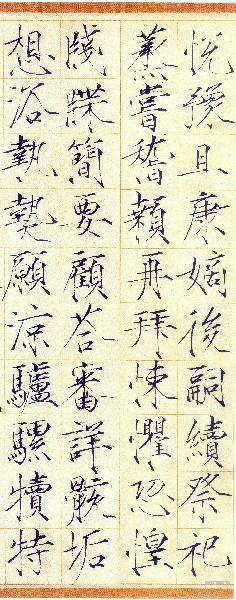 悅豫且康嫡後嗣續祭祀
蒸嘗稽顙再拜悚懼恐惶
牋牒簡要顧荅審詳骸垢
想浴執熱願凉驢騾犢特